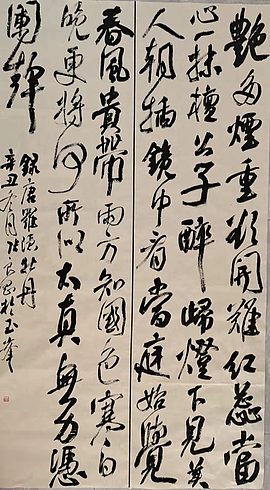 艷多煙重欲開難紅蕊當
心一抹檀公子醉歸燈下見美
人朝插鏡中看當庭始覺
春風貴帶雨方知國色寒日
晚更將何所似太真無力憑
闌幹
錄唐羅隱牡丹
辛丑月於玉峯